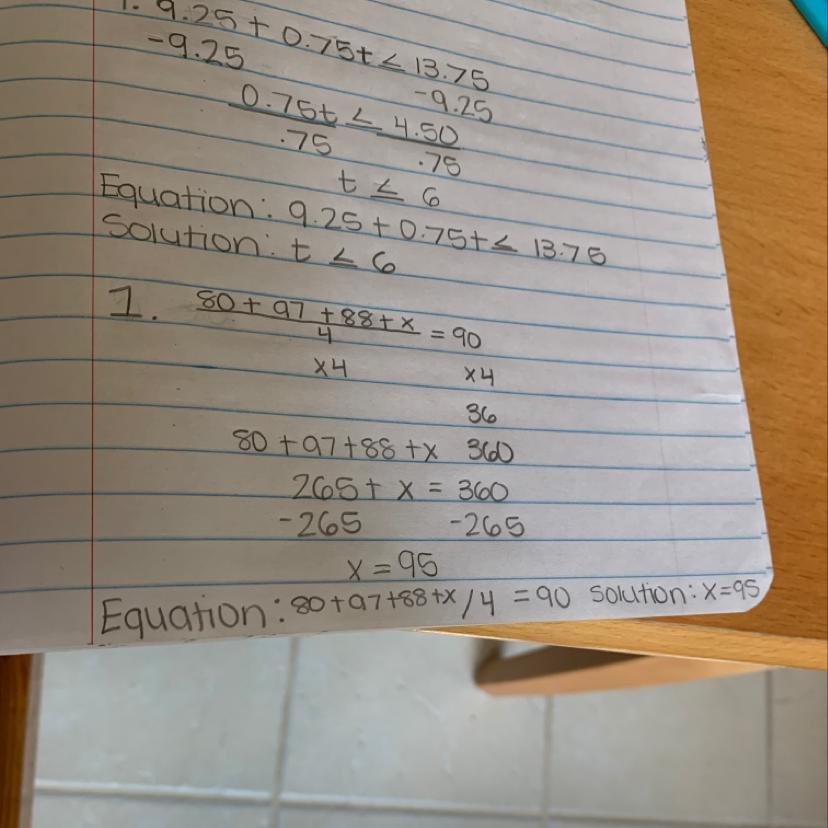 1. 9.25 + 0.75t ≤ 13.75
-9.25 -9.25
0.75t ≤ 4.50
.75 .75
t ≤ 6
Equation: 9.25 + 0.75t ≤ 13.75
Solution: t ≤ 6
1. 80 + 97 + 88 + x = 90
4
x4 x4
36
80 + 97 + 88 + x 360
265 + x = 360
-265 -265
x = 95
Equation: 80 + 97 + 88 + x / 4 = 90 Solution: x = 95